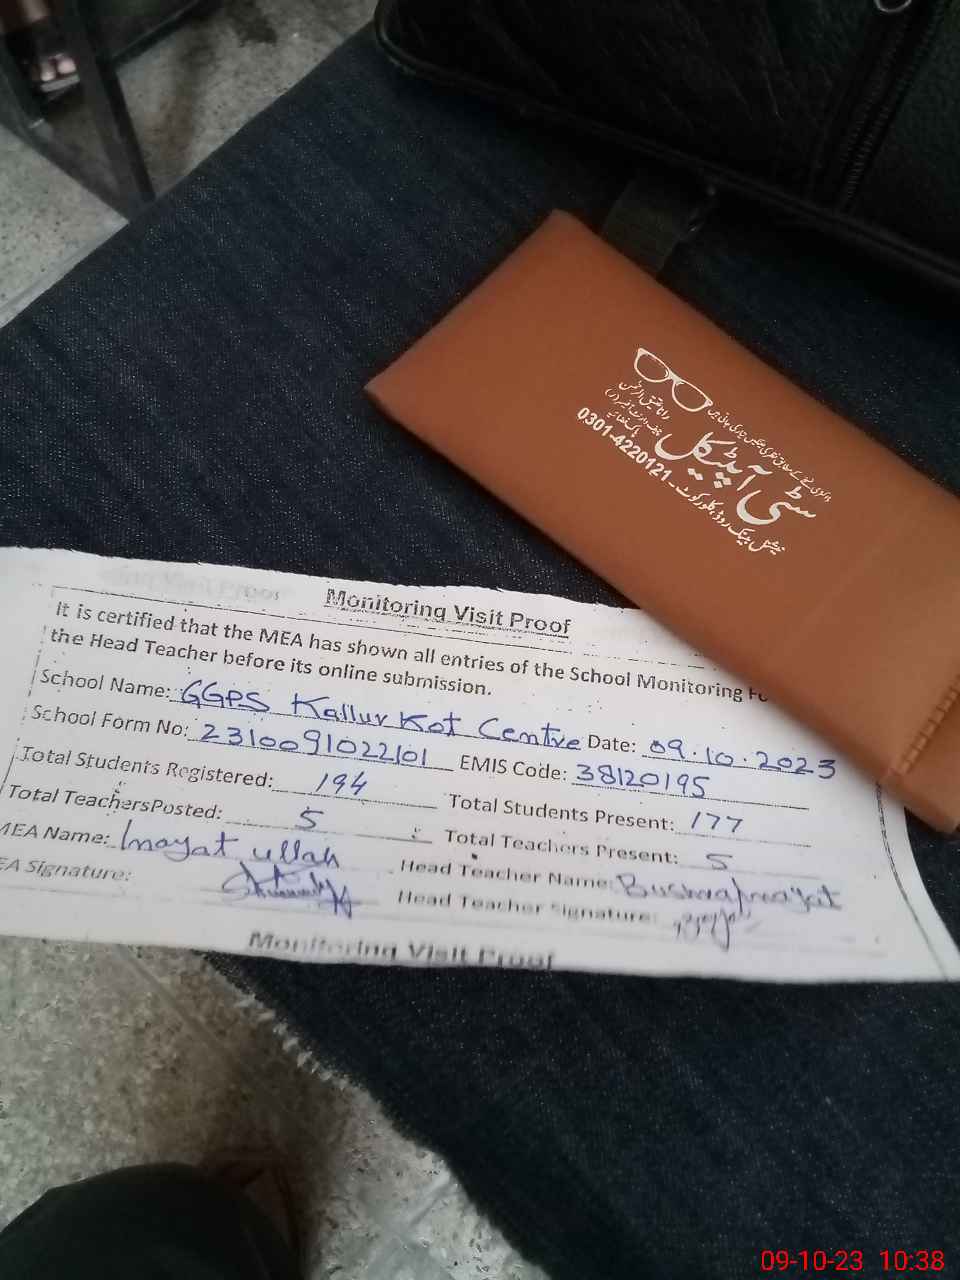 ڈاکٹری نسخے کے مطابق نظر کی عینکیں تیار کی جاتی ہیں
رانا عتیق الرحمٰن
سٹی آپٹیکل
0301-4220121
نیشنل بینک روڈ، کلورکوٹ
Monitoring Visit Proof
It is certified that the MEA has shown all entries of the School Monitoring Fo
the Head Teacher before its online submission.
School Name: GGPS Kallur Kot Centre Date: 09.10.2023
School Form No: 2310091022101 EMIS Code: 38120195
Total Students Registered: 194 Total Students Present: 177
Total TeachersPosted: 5 Total Teachers Present: 5
MEA Name: Inayat ullah Head Teacher Name: Bushra Inayat
EA Signature: Head Teacher Signature:
Monitoring Visit Proof
09-10-23 10:38